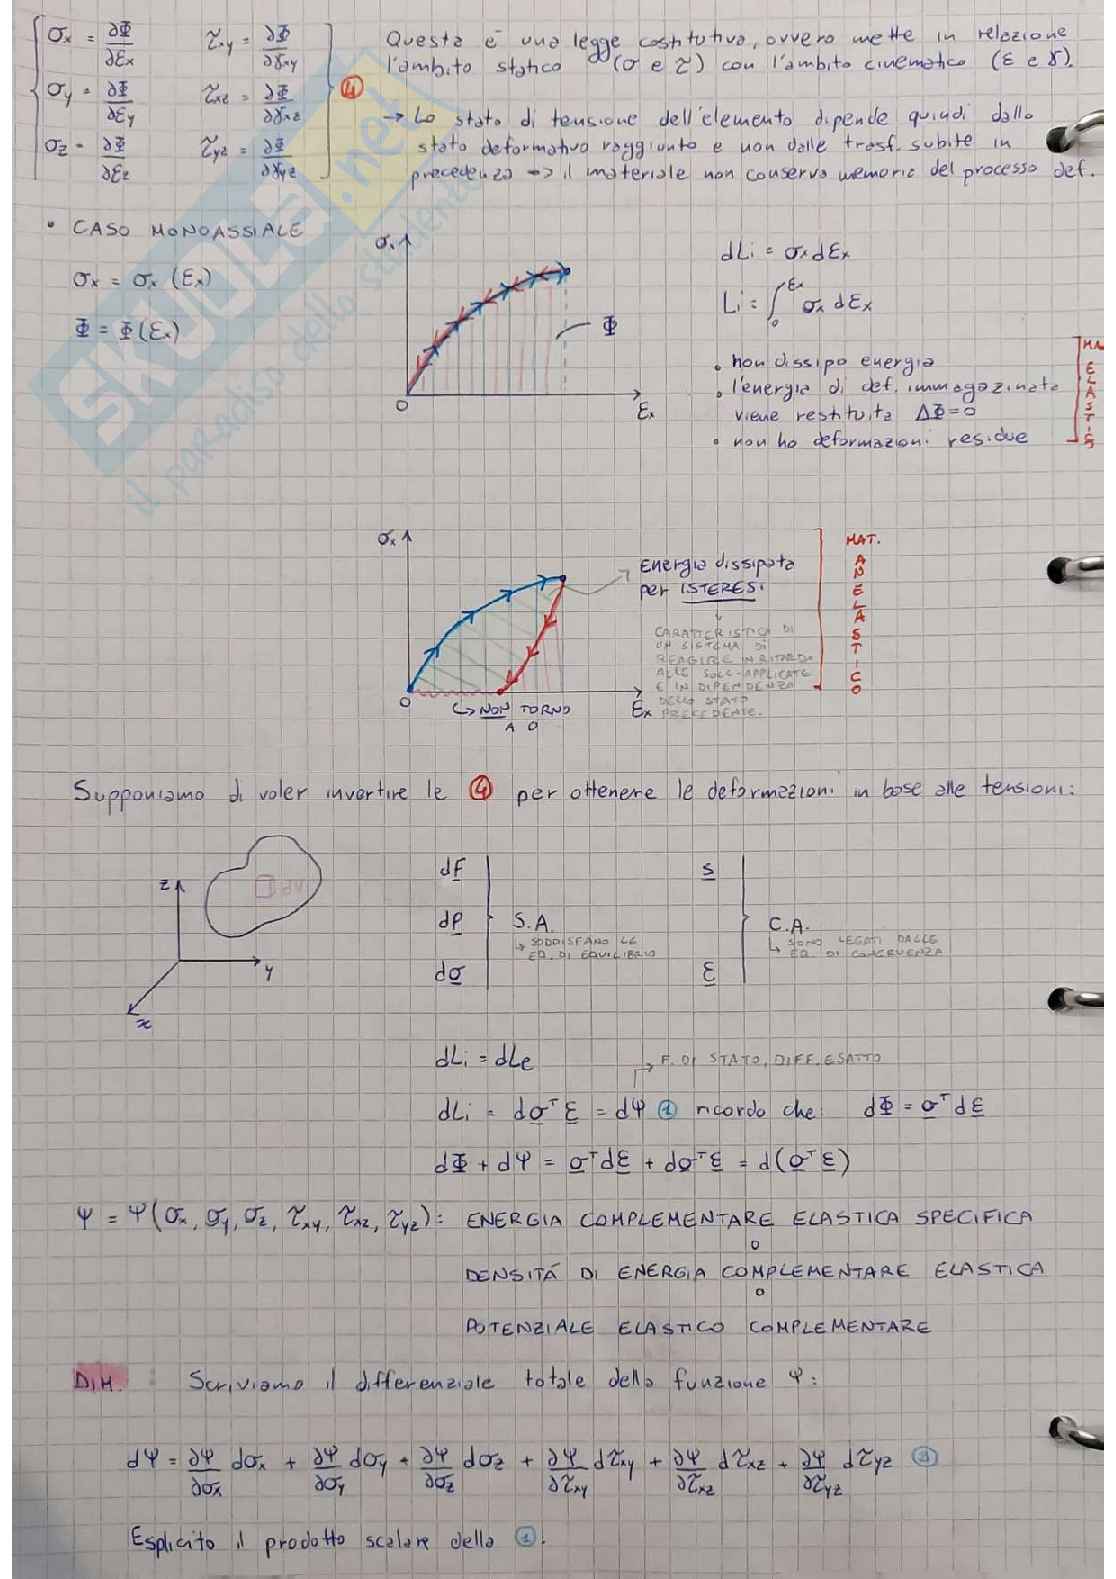 σx = ∂Φ/∂εx   τxy = ∂Φ/∂γxy
σy = ∂Φ/∂εy   τxz = ∂Φ/∂γxz   ④
σz = ∂Φ/∂εz   τyz = ∂Φ/∂γyz
Questa è una legge costitutiva, ovvero mette in relazione
l'ambito statico (σ e τ) con l'ambito cinematico (ε e γ).
→ Lo stato di tensione dell'elemento dipende quindi dallo
stato deformativo raggiunto e non dalle trasf. subite in
precedenza => il materiale non conserva memoria del processo def.
• CASO MONOASSIALE
σx = σx (εx)
Φ = Φ(εx)
σx
Φ
0
εx
dLi = σx dεx
Li = ∫₀^εx σx dεx
• non dissipo energia
• l'energia di def. immagazzinata
viene restituita ΔΦ=0
• non ho deformazioni residue
SKUOLA.net
il paradiso dello studente
σx
0
εx
Energia dissipata
per ISTERESI
↓
CARATTERISTICA DI
UN SISTEMA DI
REAGIRE IN RITARDO
ALLE SOLL. APPLICATE
E IN DIPENDENZA
DELLO STATO
PRECEDENTE.
MAT.
ANELASTICO
↳ NON TORNO
A 0
Supponiamo di voler invertire le ④ per ottenere le deformazioni in base alle tensioni:
z
y
x
dV
dF
dp
dσ
S.A.
↳ SODDISFANO LE
EQ. DI EQUILIBRIO
s
ε
C.A.
↳ SONO LEGATI DALLE
EQ. DI CONGRUENZA
dLi = dLe
→ F. DI STATO, DIFF. ESATTO
dLi = dσᵀ ε = dΨ ① ricordo che dΦ = σᵀ dε
dΦ + dΨ = σᵀdε + dσᵀε = d(σᵀ ε)
Ψ = Ψ(σx, σy, σz, τxy, τxz, τyz): ENERGIA COMPLEMENTARE ELASTICA SPECIFICA
o
DENSITÀ DI ENERGIA COMPLEMENTARE ELASTICA
o
POTENZIALE ELASTICO COMPLEMENTARE
DIM. : Scriviamo il differenziale totale della funzione Ψ:
dΨ = ∂Ψ/∂σx dσx + ∂Ψ/∂σy dσy + ∂Ψ/∂σz dσz + ∂Ψ/∂τxy dτxy + ∂Ψ/∂τxz dτxz + ∂Ψ/∂τyz dτyz
Esplicito il prodotto scalare della ①: